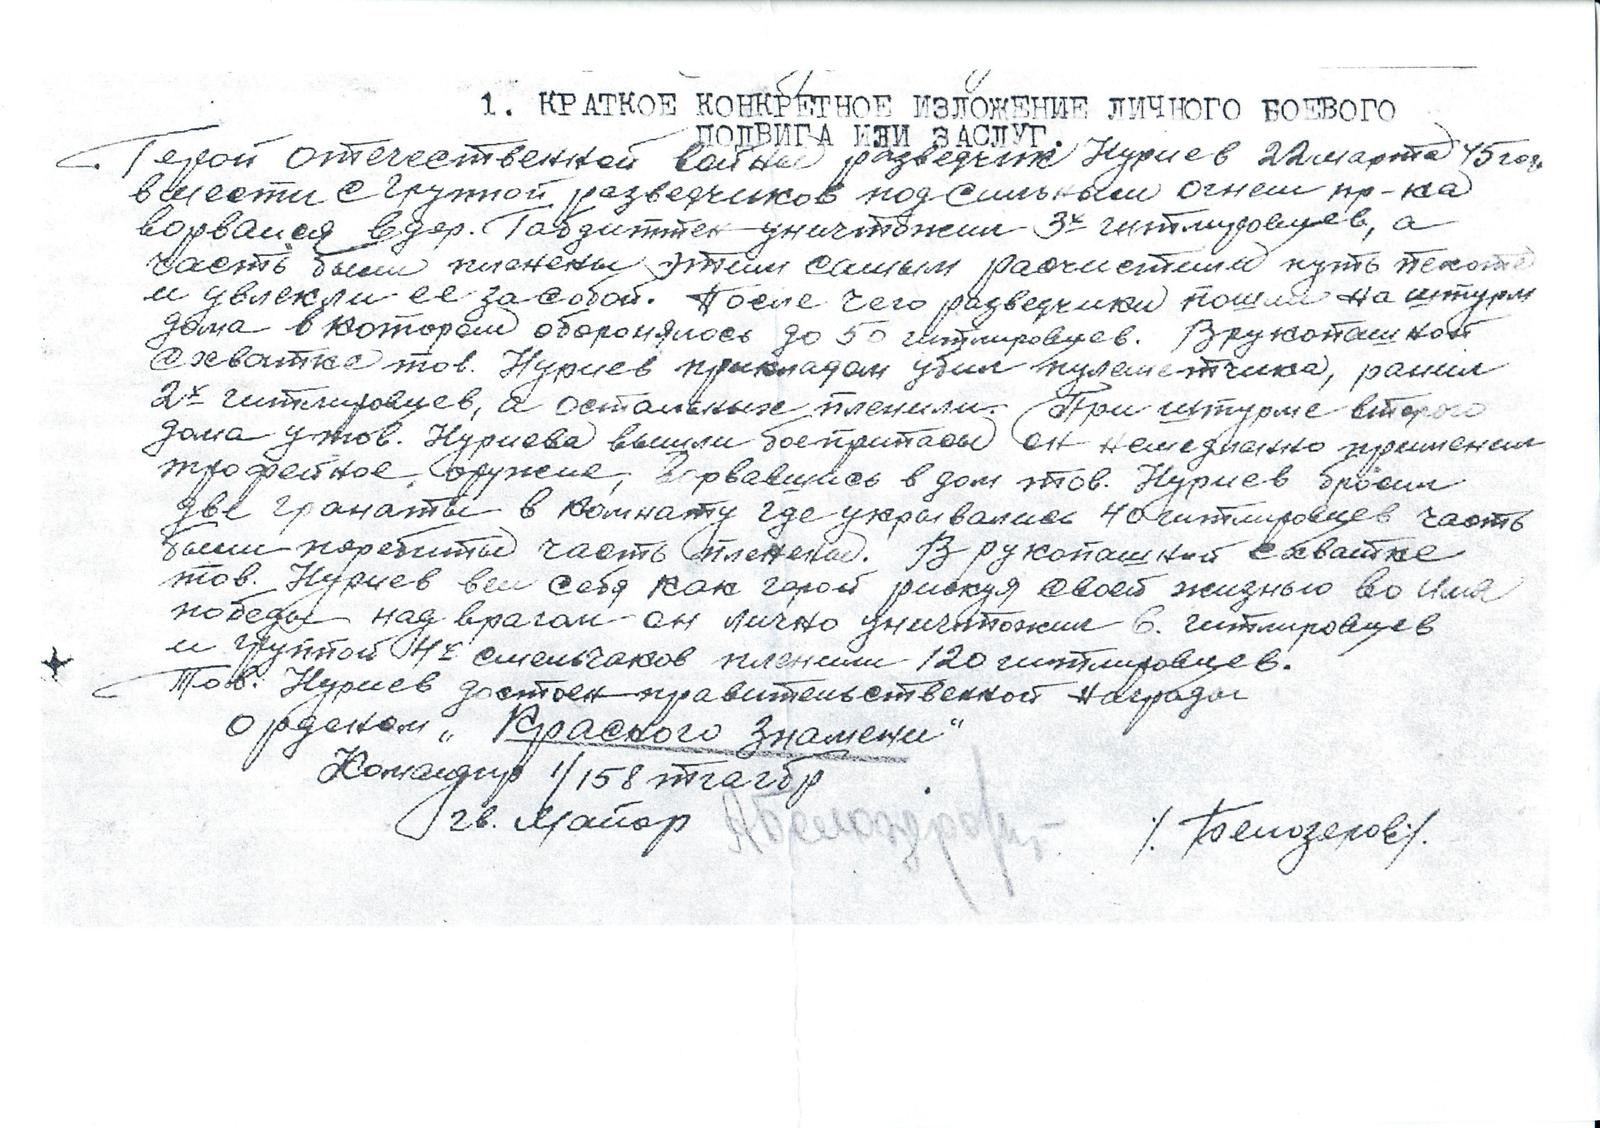 1. КРАТКОЕ КОНКРЕТНОЕ ИЗЛОЖЕНИЕ ЛИЧНОГО БОЕВОГО
ПОДВИГА ИЛИ ЗАСЛУГ.
Герой отечественной войны разведчик Нуриев 22 марта 45 год.
вмести с группой разведчиков под сильным огнем пр-ка
ворвался в дер. Габдиттен уничтожил 3х гитлеровцев, а
часть были пленены этим самым расчистили путь пехоте
и увлекли ее за собой. После чего разведчики пошли на штурм
дома в котором оборонялось до 50 гитлеровцев. В рукопашной
схватке тов. Нуриев прикладом убил пулеметчика, ранил
2х гитлеровцев, а остальных пленили. При штурме второго
дома у тов. Нуриева вышли боеприпасы он немедленно применил
трофейное оружие, Ворвавшись в дом тов. Нуриев бросил
две гранаты в комнату где укрывались 40 гитлеровцев часть
были перебиты часть пленены. В рукопашной схватке
тов. Нуриев вел себя как герой рискуя своей жизнью во имя
победы над врагом он лично уничтожил 6. гитлеровцев
и группой 4х смельчаков пленили 120 гитлеровцев.
Тов. Нуриев достоен правительственной награды
орденом „Красного Знамени“
Командир 1/158 тгабр
гв. Майор
/. Белозеров ./.